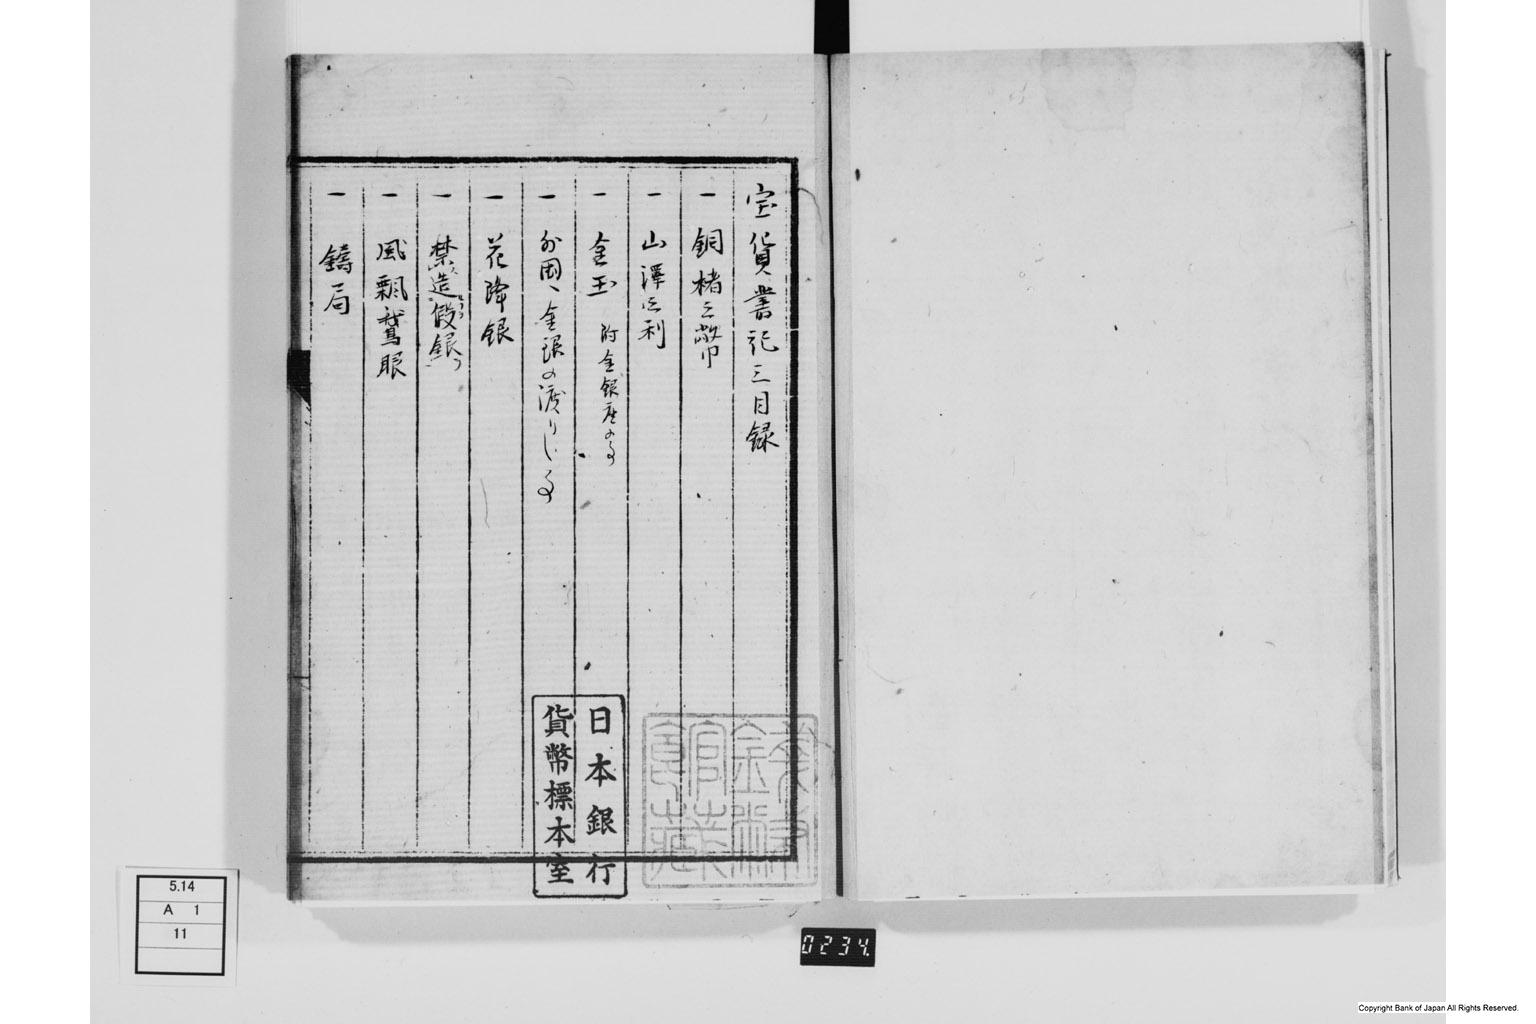 宝貨叢記三目録
一 銅楮之幣
一 山澤之利
一 金玉 附金銀座の事
一 外国ヘ金銀の渡りし事
一 花降銀
一 禁造假銀
一 風飄鵞眼
一 鑄局
日本銀行
貨幣標本室
館蔵
5.14
A 1
11
0234.
Copyright Bank of Japan All Rights Reserved.